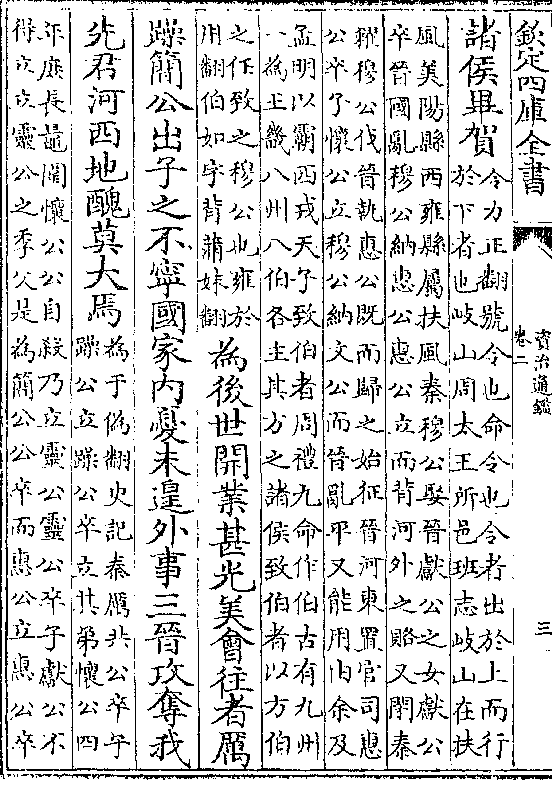 欽定四庫全書
資治通鑑
卷二
三
諸侯畢賀
令力正翻號令也命令也令者出於上而行
於下者也岐山周太王所邑班志岐山在扶
風美陽縣西雍縣屬扶風秦穆公娶晉獻公之女獻公
卒晉國亂穆公納惠公惠公立而背河外之賂又閉秦
糴穆公伐晉執惠公既而歸之始征晉河東置官司惠
公卒子懷公立穆公納文公而晉亂平又能用由余及
孟明以霸西戎天子致伯者周禮九命作伯古有九州
一為王畿八州八伯各主其方之諸侯致伯者以方伯
之任致之穆公也雍於
用翻伯如字背蒲妹翻
為後世開業甚光美會往者厲
躁簡公出子之不寧國家内憂未遑外事三晉攻奪我
先君河西地醜莫大焉
為于偽翻史記秦厲共公卒子
躁公立躁公卒立其弟懷公四
年庶長鼂圍懷公公自殺乃立靈公靈公卒子獻公不
得立立靈公之季父是為簡公公卒而惠公立惠公卒